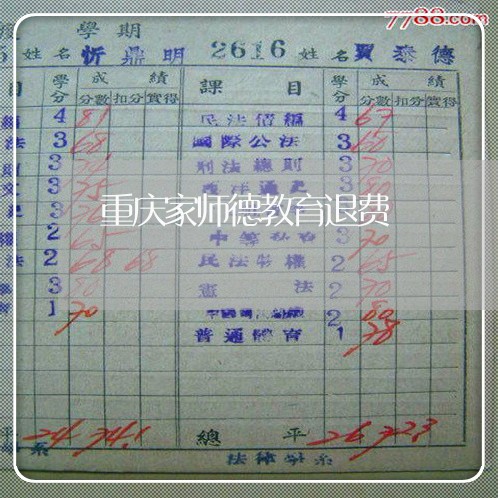 7788.com
學期
姓名 忻鼎明 2616 姓名 賈泰德
目 學分 成績 課目 學分 成績
分數 扣分 實得 分數 扣分 實得
4 81 民法債編 4 67
法 3 68 國際公法 3 60
3 刑法總則 3 70
文 3 75 3 80
重庆家师德教育退费
2 65 3 70
法 2 68 68 民法物權 2 65
3 80 憲法 2 70
1 70 2 80
普通體育 1 78
平 24 74.1 總平 26 72.3
系 法律學系